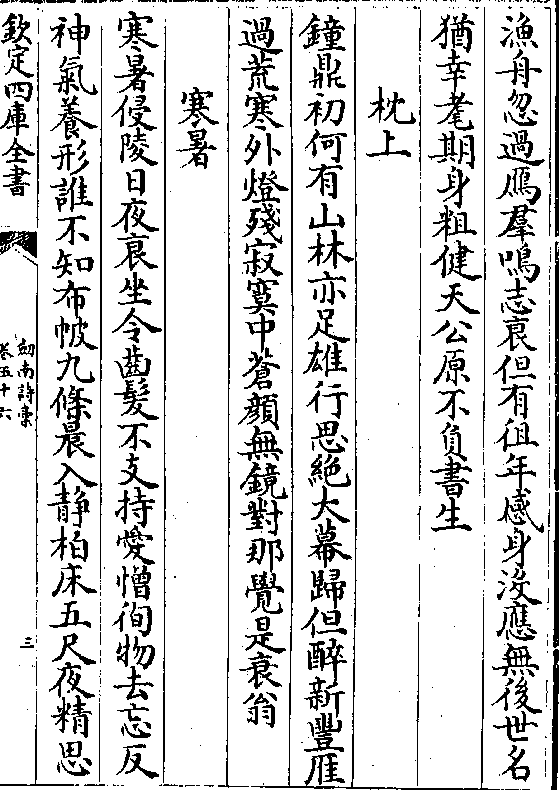 漁舟忽過鴈羣鳴志衰但有徂年感身沒應無後世名
猶幸耄期身粗健天公原不負書生
枕上
鐘鼎初何有山林亦足雄行思絶大幕歸但醉新豐雁
過荒寒外燈殘寂寞中蒼顔無鏡對那覺是衰翁
寒暑
寒暑侵陵日夜衰坐令齒髮不支持愛憎徇物去忘反
神氣養形誰不知布帔九條晨入静柏床五尺夜精思
欽定四庫全書
劎南詩槀
卷五十六
三